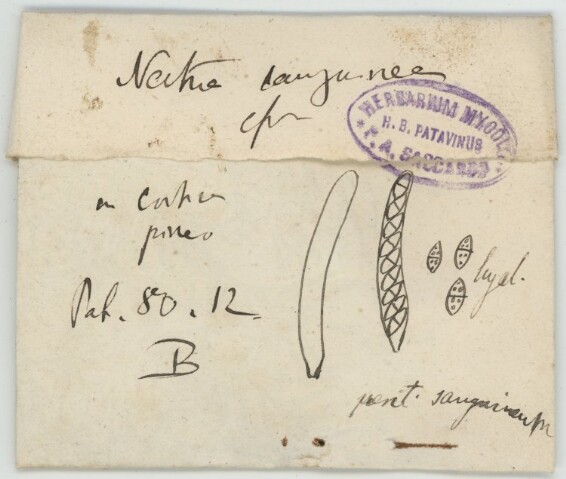 Nectria sanguinea
HERBARIUM MYCOL.
H. B. PATAVINUS
P. A. SACCARDO
in cortice
pineo
Pat. 80. 12
B
hyal.
perit. sanguineum